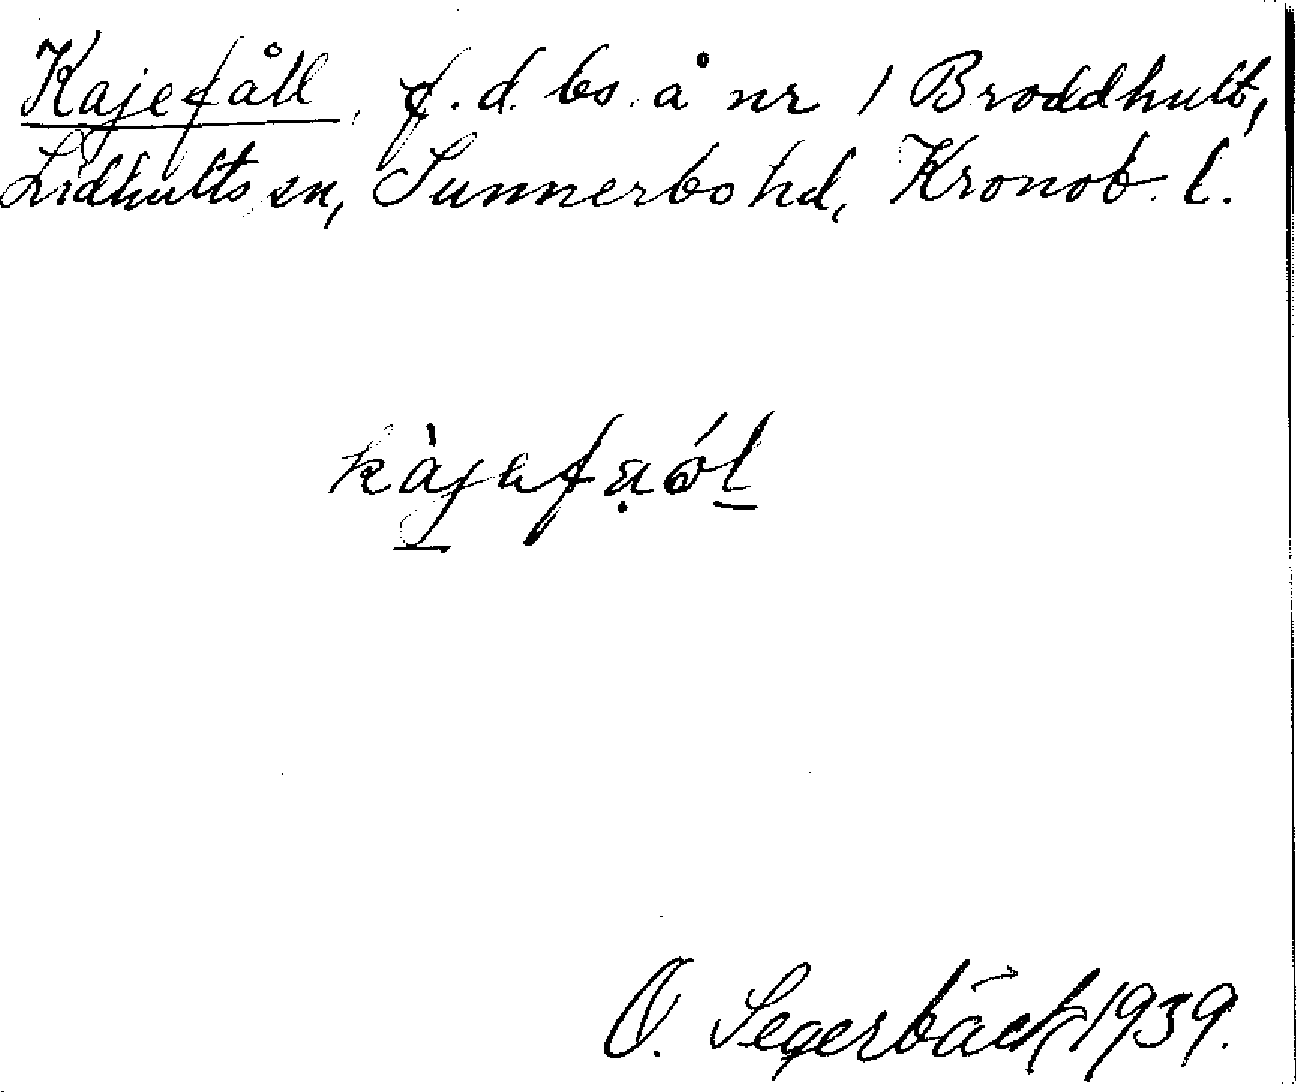 Kajefåll, f.d. bs. å nr 1 Broddhult,
Lidhults sn, Sunnerbo hd, Kronob. l.
O. Segerbäck 1939.